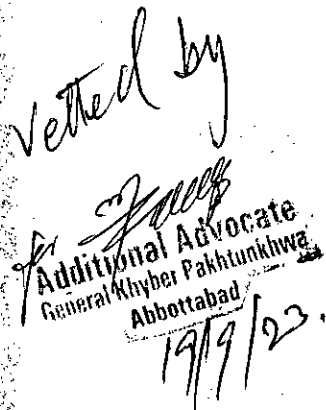 Vetted by
for
Additional Advocate
General Khyber Pakhtunkhwa
Abbottabad
19/9/23.